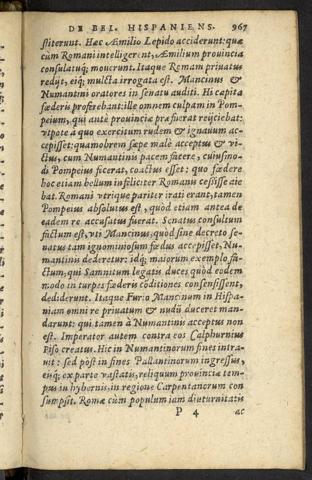 DE BEL. HISPANIENS. 967
stiterunt. Hæc Æmilio Lepido acciderunt: quæ
cùm Romani intelligerent, Æmilium prouincia
consulatuq; mouerunt. Itaque Romam priuatus
redijt, eiq; mulcta irrogata est. Mancinus &
Numantini oratores in senatu auditi. Hi capita
fœderis proferebant: ille omnem culpam in Pom-
peium, qui antè prouinciæ præfuerat reijciebat:
vtpote à quo exercitum rudem & ignauum ac-
cepisset: quamobrem sæpe malè acceptus & vi-
ctus, cum Numantinis pacem facere, cuiusmo-
di Pompeius fecerat, coactus esset: quo fœdere
hoc etiam bellum infeliciter Romanis cessisse aie
bat. Romani vtrique pariter irati erant, tamen
Pompeius absolutus est, quòd etiam antea de
eadem re accusatus fuerat. Senatus consultum
factum est, vti Mancinus, quòd sine decreto se-
natus tam ignominiosum fœdus accepisset, Nu-
mantinis dederetur: idq; maiorum exemplo fa-
ctum, qui Samnitum legatis duces, quòd eodem
modo in turpes fœderis cõditiones consensissent,
dediderunt. Itaque Furio Mancinum in Hispa-
niam omni re priuatum & nudũ duceret man-
darunt: qui tamen à Numantinis acceptus non
est. Imperator autem contra eos Calphurnius
Piso creatus. Hic in Numantinorum fines intra-
uit: sed pòst in fines Pallantinorum ingressus,
eisq; ex parte vastatis, reliquum prouinciæ tem-
pus in hybernis, in regione Carpentanorum con
sumpsit. Romæ cùm populum iam diuturnitatis
P 4 ac